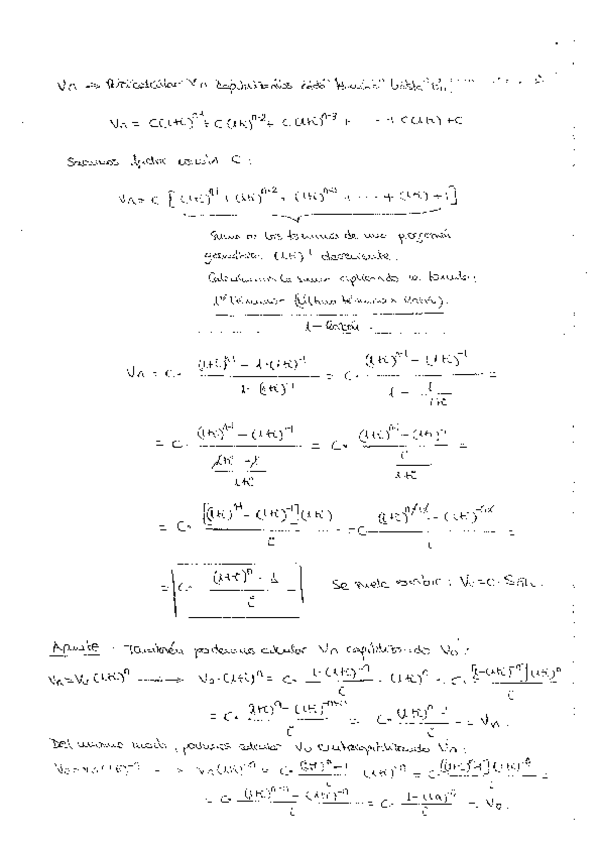 Vn → Para calcular Vn capitalizamos cada término hasta
Vn = C(1+i)^n-1 + C(1+i)^n-2 + C(1+i)^n-3 + ... + C(1+i) + C
Sacamos factor común C:
Vn = C [(1+i)^n-1 + (1+i)^n-2 + (1+i)^n-3 + ... + (1+i) + 1]
Suma de los términos de una progresión
geométrica (1+i)^-1 decreciente.
Calculamos la suma aplicando la fórmula:
1º término - (último término x razón).
1 - Razón
Vn = C· (1+i)^n-1 - 1·(1+i)^-1 / 1-(1+i)^-1 = C· (1+i)^n-1 - (1+i)^-1 / 1 - 1/1+i =
= C· (1+i)^n-1 - (1+i)^-1 / 1+i - 1/1+i = C· (1+i)^n-1 - (1+i)^-1 / i/1+i =
= C· [(1+i)^n-1 - (1+i)^-1](1+i) / i = C· (1+i)^n-1+1 - (1+i)^-1+1 / i =
= C· (1+i)^n - 1 / i Se suele escribir: Vn = C·
Apunte: También podemos calcular Vn capitalizando V0:
Vn = V0·(1+i)^n → V0·(1+i)^n = C· 1-(1+i)^-n / i · (1+i)^n = C· [1-(1+i)^-n](1+i)^n / i
= C· (1+i)^n - (1+i)^-n+n / i = C· (1+i)^n - 1 / i = Vn.
Del mismo modo, podemos calcular V0 Vn:
V0 = Vn(1+i)^-n → Vn(1+i)^-n = C· (1+i)^n - 1 / i · (1+i)^-n = C· [(1+i)^n-1](1+i)^-n / i =
= C· (1+i)^n-n - (1+i)^-n / i = C· 1-(1+i)^-n / i = V0.